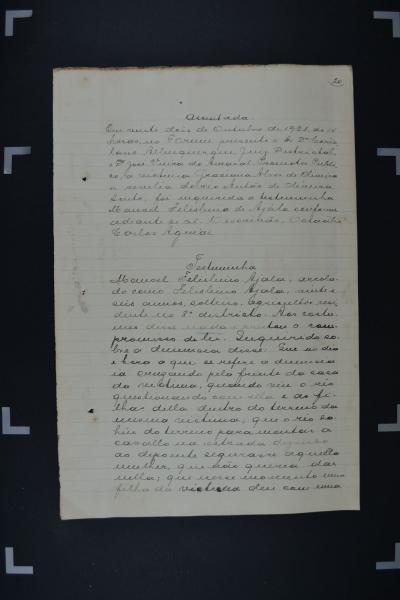 20
Assentada.
Em vinte dois de Outubro de 1921, ás 14
horas, no Forum presente o Dr
Albuquerque Juiz Districtal,
e Dr José Vieira do Amaral, Promotor Publi-
co, a victima Graciana Alves de Oliveira
a revelia do réo Antão de Oliveira
foi inquerida a testemunha
Manoel Felisbino de Ajala conforme
adiante se vê. O escrivão,
Carlos Aguiar
Testemunha
Manoel Felisbino Ajala,
do como Felisbino Ajala, vinte e
seis annos, solteiro, agricultor, resi-
dente no 8º districto. Aos costu-
mes disse nada e prestou o com-
promisso da lei. Inquerido so-
bre a denuncia disse: Que no dia
e hora a que se refere a denuncia
ia cruzando pela frente da casa
da victima, quando viu o réo
questionando com ella e as fi-
lhas della dentro do terreno da
mesma victima; que o réo sa-
hiu do terreno para montar a
cavallo na estrada
ao depoente segurasse aquella
mulher, que não queria dar
nella; que nesse momento uma
filha da victima deu com uma